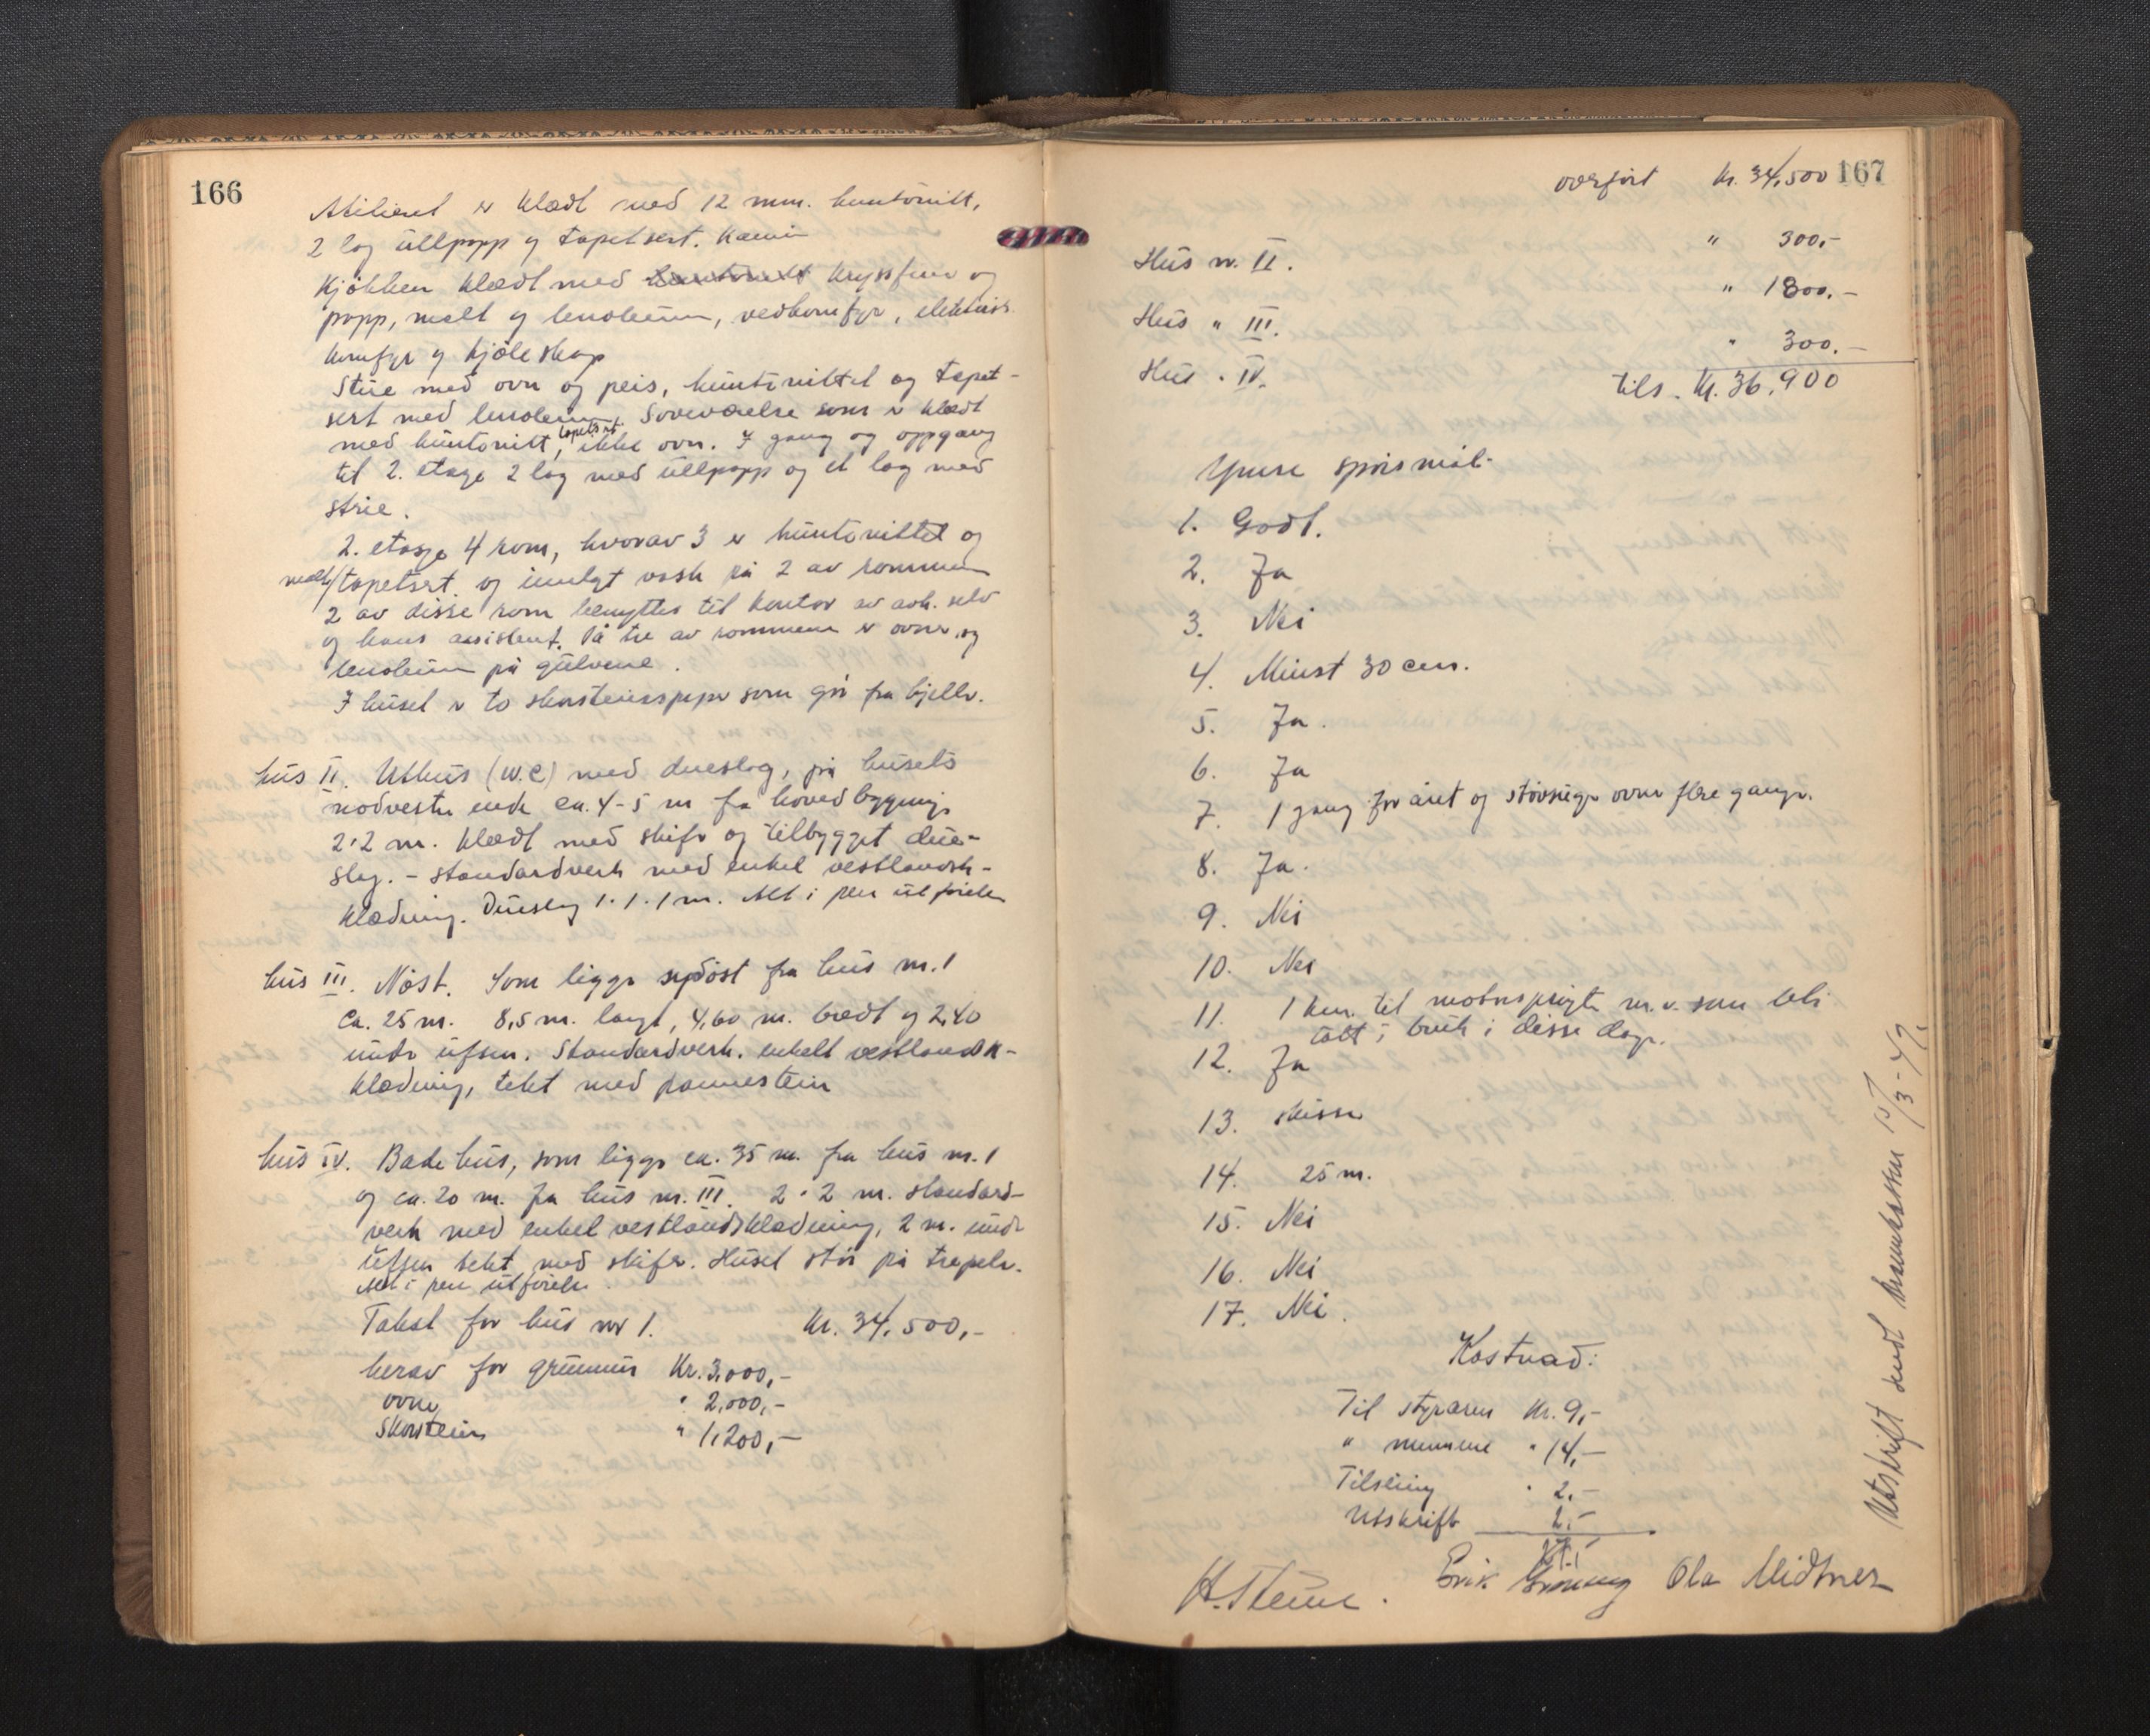 166
Atilieret er klædt med 12 mm. huntonitt,
2 lag ullpapp og tapetsert. Kamin
Kjøkken klædt med huntonitt kryssfiner og
papp, malt og lenoleum, vedkomfyr, elektrisk
komfyr og kjøleskap
Stue med ovn og peis, huntonittet og tapet-
sert med lenoleum. Soveværelse som er klædt
med huntonitt, tapetsert ikke ovn. I gang og oppgang
til 2. etage 2 lag med ullpapp og et lag med
strie.
2. etasje 4 rom, hvorav 3 er huntonittet og
malt/tapetsert. og innlagt vask på 2 av rommene
2 av disse rom benyttes til kontor av selv
og hans assistent. På tre av rommene er ovner og
lenoleum på gulvene.
I huset er to skorsteinspiper som går fra kjeller.
hus II. Uthus (W.C) med dueslag, på husets
nordvestre ende ca. 4-5 m fra hovedbygning
2·2 m. klædt med skifer og tilbygget due-
slag. - standardverk med enkel vestlandsk-
klædning. Dueslag 1·1·1 m. Alt i pen utførelse
hus III. Nøst. Som ligger sydøst fra hus nr. 1
ca. 25 m. 8,5 m. langt, 4,60 m. bredt og 2,40
under ufsen. Standardverk. enkelt vestlandsk-
klædning, tekt med pannestein
hus IV. Badehus, som ligger ca. 35 m. fra hus nr. 1
og ca. 20 m. fra hus nr. III. 2·2 m. standard-
verk med enkel vestlandsklædning, 2 m. under
ufsen tekt med skifer. Huset står på trepeler.
Alt i pen utførelse.
Takst for hus nr 1. Kr. 34,500,-
herav for grunnmur Kr. 3,000,-
ovner " 2,000,-
Skorstein " 1,200,-
167
overført Kr. 34,500
Hus nr. II. " 300,-
Hus " III. " 1800,-
Hus " IV. " 300,-
tils. Kr. 36,900
Ymse spørsmål.
1. Godt.
2. Ja
3. Nei
4. Minst 30 cm.
5. Ja.
6. Ja
7. 1 gang for året og støvsuger ovner flere ganger.
8. Ja.
9. Nei
10. Nei
11. 1 km. til motorsprøyte m.v. som blir
tatt i bruk i disse dager.
12. Ja
13. skisse
14. 25 m.
15. Nei
16. Nei
17. Nei.
Kostnad:
Til styraren Kr. 9,-
" mennene " 14,-
Tilseiing " 2,-
Utskrift 2,-
H. Steine. Erik Ola Midtnes
Utskrift sendt brannkassen 15/3-47.